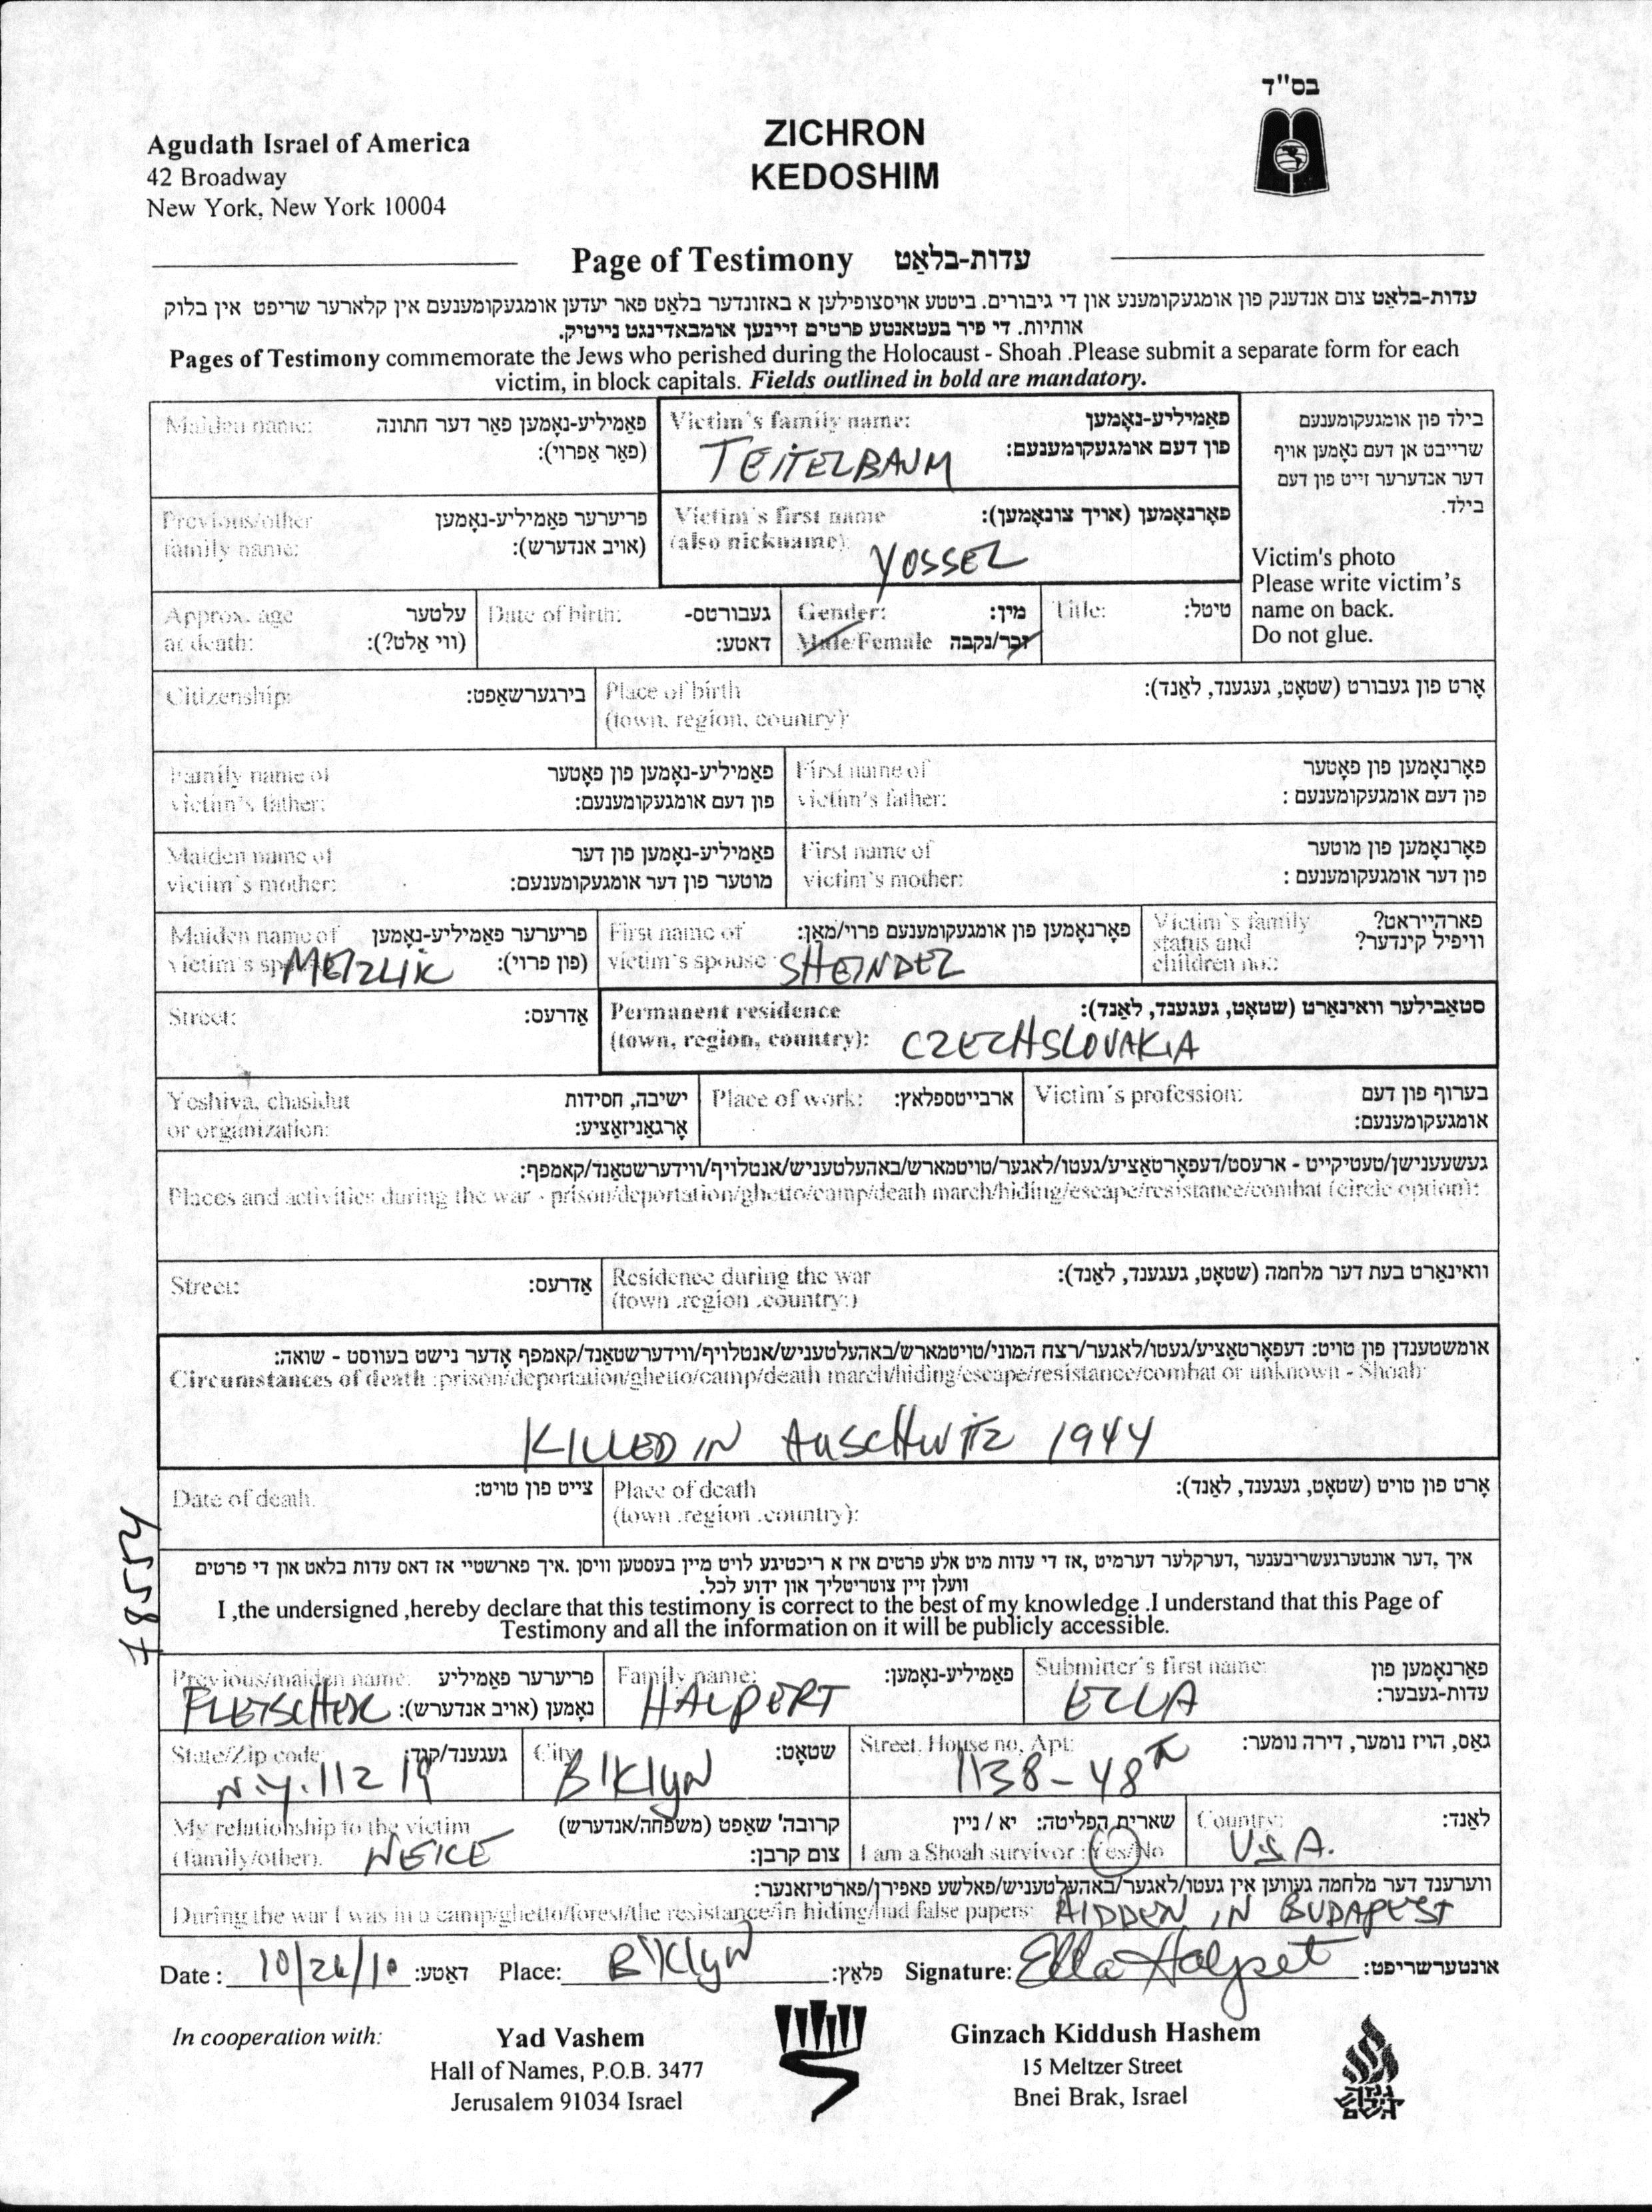 בס"ד
Agudath Israel of America
42 Broadway
New York, New York 10004
ZICHRON
KEDOSHIM
Page of Testimony עדות-בלאַט
עדות-בלאַט צום אנדענק פון אומגעקומענע און די גיבורים. ביטטע אויסצופילען א באזונדער בלאַט פאר יעדען אומגעקומענעם אין קלארער שריפט אין בלוק
אותיות. די פיר בעטאנטע פרטים זיינען אומבאדינגט נייטיק.
Pages of Testimony commemorate the Jews who perished during the Holocaust - Shoah .Please submit a separate form for each
victim, in block capitals. Fields outlined in bold are mandatory.
Maiden name: פאַמיליע-נאָמען פאַר דער חתונה
(פאַר אַפרוי):
Victim's family name: פאַמיליע-נאָמען
פון דעם אומגעקומענעם:
TEITELBAUM
בילד פון אומגעקומענעם
שרייבט אן דעם נאָמען אויף
דער אנדערער זייט פון דעם
בילד.
Victim's photo
Please write victim's
name on back.
Do not glue.
Previous/other פריערער פאַמיליע-נאָמען
family name: (אויב אנדערש):
Victim's first name פאָרנאָמען (אויך צונאָמען):
(also nickname):
YOSSEL
Approx. age עלטער
at death: (ווי אַלט?):
Date of birth: געבורטס-
דאַטע:
Gender: מין:
Male/Female זכר/נקבה
Title: טיטל:
Citizenship: בירגערשאַפט:
Place of birth אָרט פון געבורט (שטאָט, געגענד, לאַנד):
(town, region, country):
Family name of פאַמיליע-נאָמען פון פאָטער
victim's father: פון דעם אומגעקומענעם:
First name of פאָרנאָמען פון פאָטער
victim's father: פון דעם אומגעקומענעם :
Maiden name of פאַמיליע-נאָמען פון דער
victim's mother: מוטער פון דער אומגעקומענעם:
First name of פאָרנאָמען פון מוטער
victim's mother: פון דער אומגעקומענעם :
Maiden name of פריערער פאַמיליע-נאָמען
victim's (פון פרוי):
MEIZLIK
First name of פאָרנאָמען פון אומגעקומענעם פרוי/מאַן:
victim's spouse
SHEINDEL
Victim's family פארהייראט?
status and וויפיל קינדער?
children no.:
Street: אַדרעס:
Permanent residence סטאַבילער וואינאַרט (שטאָט, געגענד, לאַנד):
(town, region, country): CZECHSLOVAKIA
Yeshiva, chasidut ישיבה, חסידות
or organization: אָרגאַניזאַציע:
Place of work: ארבייטספלאץ:
Victim's profession: בערוף פון דעם
אומגעקומענעם:
געשעענישן/טעטיקייט - ארעסט/דעפאָרטאַציע/געטו/לאַגער/טויטמארש/באהעלטעניש/אנטלויף/ווידערשטאַנד/קאמפף:
Places and activities during the war - prison/deportation/ghetto/camp/death march/hiding/escape/resistance/combat (circle option):
Street: אַדרעס:
Residence during the war וואינאַרט בעת דער מלחמה (שטאָט, געגענד, לאַנד):
(town .region .country:)
אומשטענדן פון טויט: דעפאָרטאַציע/געטו/לאגער/רצח המוני/טויטמארש/באהעלטעניש/אנטלויף/ווידערשטאַנד/קאמפף אָדער נישט בעוווסט - שואה:
Circumstances of death :prison/deportation/ghetto/camp/death march/hiding/escape/resistance/combat or unknown - Shoah:
KILLED IN AUSCHWITZ 1944
Date of death. צייט פון טויט:
Place of death אָרט פון טויט (שטאָט, געגענד, לאַנד):
(town .region .country):
איך ,דער אונטערגעשריבענער ,דערקלער דערמיט ,אז די עדות מיט אלע פרטים איז א ריכטיגע לויט מיין בעסטען וויסן .איך פארשטיי אז דאס עדות בלאט און די פרטים
וועלן זיין צוטריטליך און ידוע לכל.
I ,the undersigned ,hereby declare that this testimony is correct to the best of my knowledge .I understand that this Page of
Testimony and all the information on it will be publicly accessible.
Previous/maiden name: פריערער פאַמיליע
נאָמען (אויב אנדערש):
FLEISCHER
Family name: פאַמיליע-נאָמען:
HALPERT
Submitter's first name: פאַרנאָמען פון
עדות-געבער:
ELLA
State/Zip code: געגענד/קוד:
N.Y. 11219
City שטאָט:
B'KLYN
Street, House no, Apt: גאַס, הויז נומער, דירה נומער:
1138-48th
My relationship to the victim קרובה' שאַפט (משפחה/אנדערש)
(family/other). צום קרבן:
NEICE
שארית הפליטה: יא / ניין
I am a Shoah survivor :Yes/No
Country: לאַנד:
U.S.A.
ווערענד דער מלחמה געווען אין געטו/לאגער/באהעלטעניש/פאלשע פאפירן/פארטיזאנער:
During the war I was in a camp/ghetto/forest/the resistance/in hiding/had false papers: HIDDEN IN BUDAPEST
Date : 10/26/10 דאַטע: Place: B'KLYN פלאַץ: Signature: Ella Halpert אונטערשריפט:
In cooperation with:
Yad Vashem
Hall of Names, P.O.B. 3477
Jerusalem 91034 Israel
Ginzach Kiddush Hashem
15 Meltzer Street
Bnei Brak, Israel